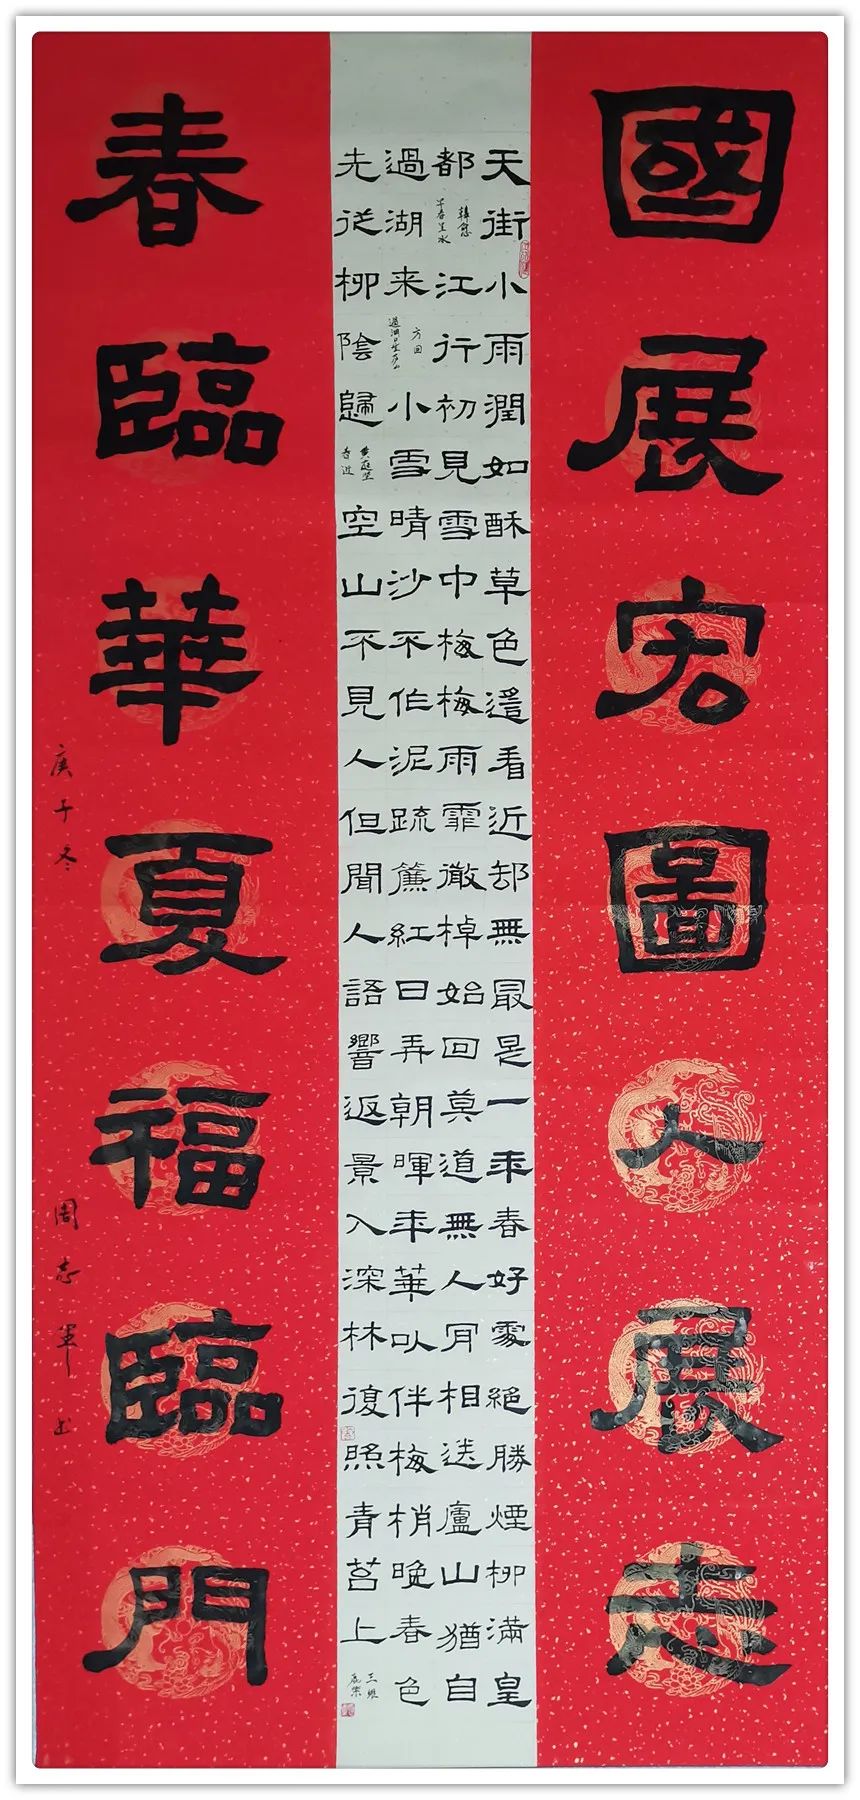 國展宏圖人展志
天街小雨潤如酥草色遥看近却無最是一年春好處絶勝煙柳滿皇
都
韓愈
早春呈水
江行初見雪中梅梅雨霏微棹始回莫道無人肯相送廬山猶自
過湖来
方回
過湖口望廬山
小雪晴沙不作泥疏簾紅日弄朝暉年華以伴梅梢晚春色
先從柳陰歸
黄庭堅
春近
空山不見人但聞人語響返景入深林復照青苔上
王維
鹿柴
春臨華夏福臨門
庚子冬
周志軍书